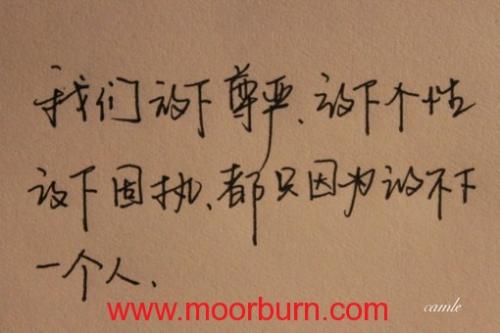 我们放下尊严、放下个性
放下固执、都只因为放不下
一个人、
www.moorburn.com
camle